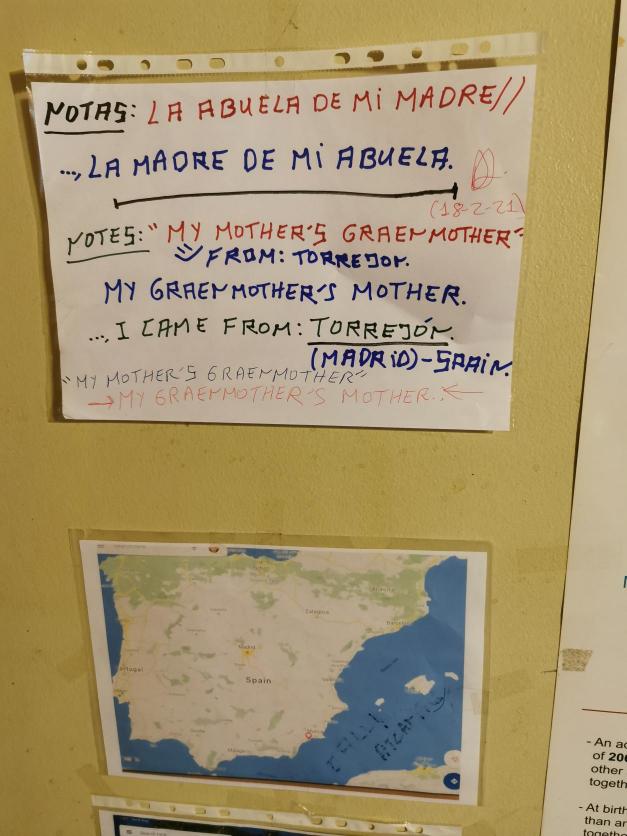 NOTAS: LA ABUELA DE Mi MADRE//
..., LA MADRE DE Mi ABUELA.
(18-2-21)
NOTES: "MY MOTHER'S GRAEMMOTHER"
FROM: TORREJON.
MY GRAEMMOTHER'S MOTHER.
..., I CAME FROM: TORREJÓN.
(MADRiD)-SPAiN.
"MY MOTHER'S GRAEMMOTHER"
→MY GRAEMMOTHER'S MOTHER..←
Zaragoza
Madrid
Spain
- An
of 200
other
togeth
- At birth
than an
togethe